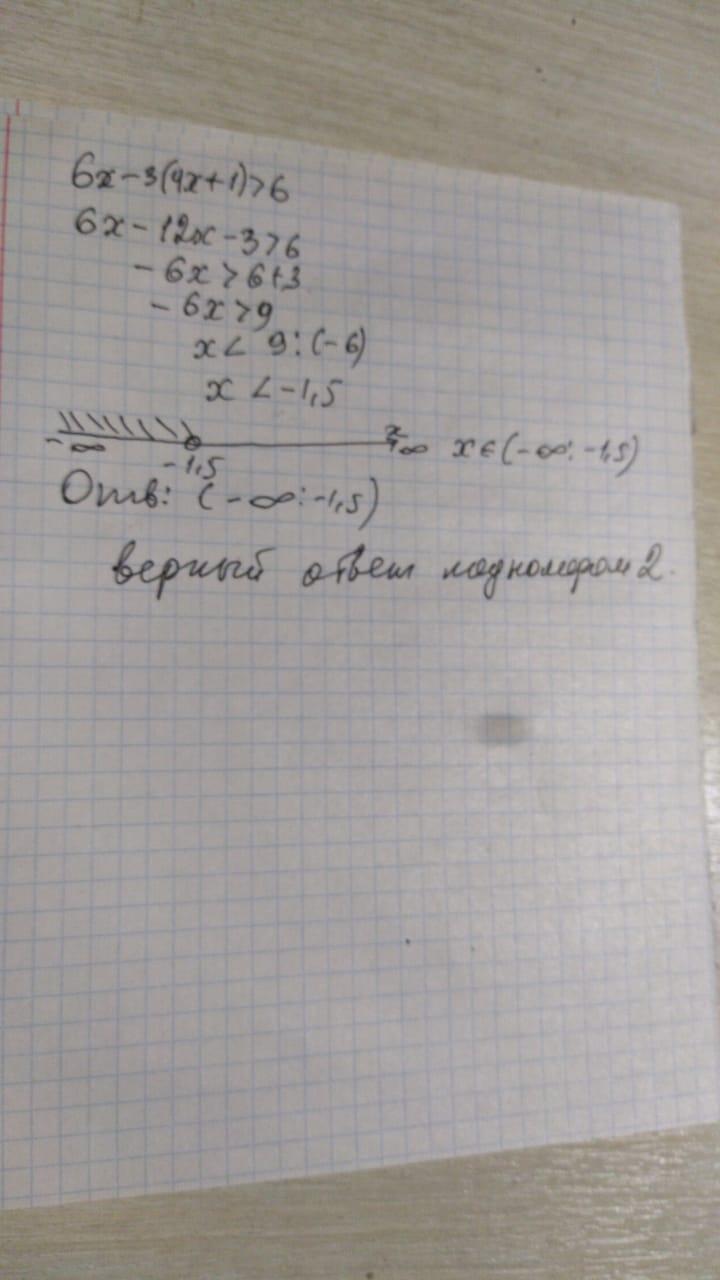 6x-3(4x+1)>6
6x-12x-3>6
-6x>6+3
-6x>9
x< 9:(-6)
x <-1,5
-∞ -1,5 x +∞ x∈(-∞:-1,5)
Отв: (-∞:-1,5)
верный ответ под номером 2.